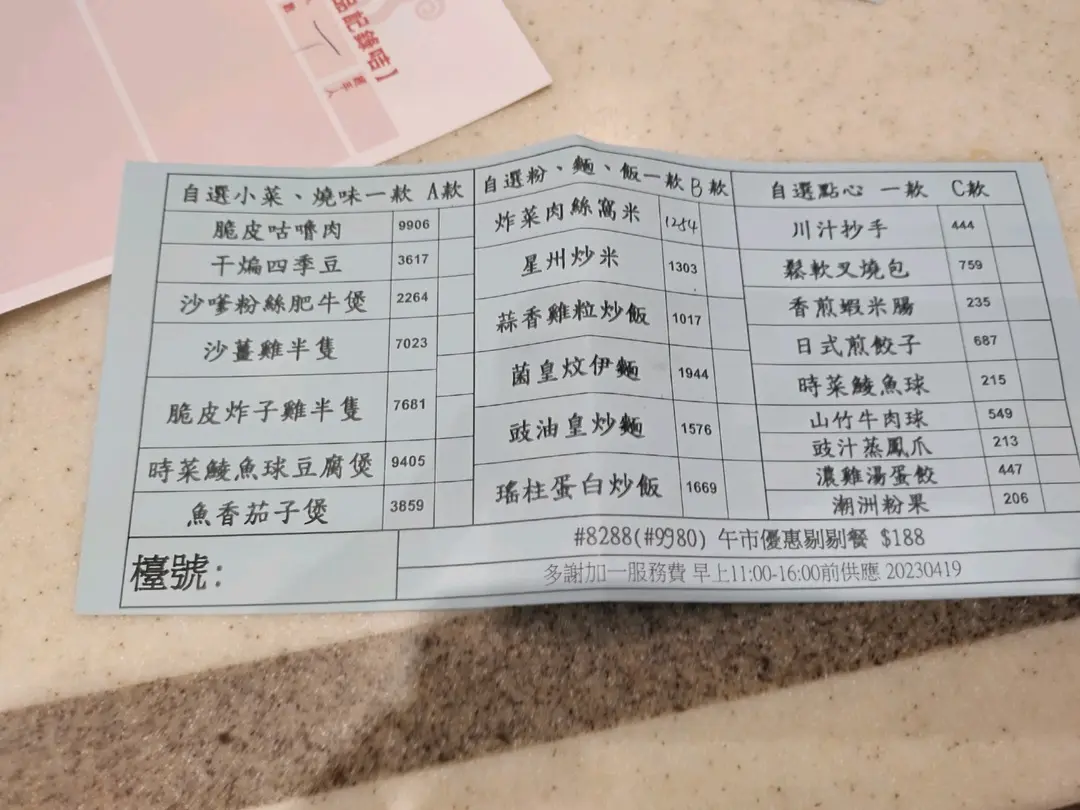 品記錄咭】
經手人
自選小菜、燒味一款 A款
脆皮咕嚕肉 9906
干煸四季豆 3617
沙嗲粉絲肥牛煲 2264
沙薑雞半隻 7023
脆皮炸子雞半隻 7681
時菜鯪魚球豆腐煲 9405
魚香茄子煲 3859
自選粉、麵、飯一款 B款
炸菜肉絲窩米 1254
星州炒米 1303
蒜香雞粒炒飯 1017
菌皇炆伊麵 1944
豉油皇炒麵 1576
瑤柱蛋白炒飯 1669
自選點心 一款 C款
川汁抄手 444
鬆軟叉燒包 759
香煎蝦米腸 235
日式煎餃子 687
時菜鯪魚球 215
山竹牛肉球 549
豉汁蒸鳳爪 213
濃雞湯蛋餃 447
潮洲粉果 206
檯號:
#8288(#9980) 午市優惠剔剔餐 $188
多謝加一服務費 早上11:00-16:00前供應 20230419